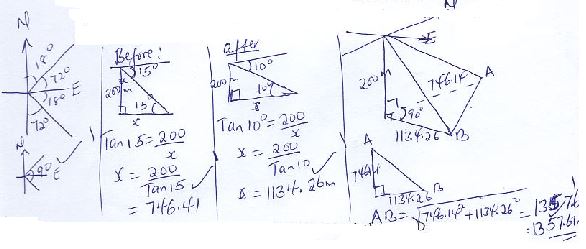 N
18°
72°
E
18°
72°
N
90°
E
Before:
15°
200m
15
x
Tan 15 = 200/x
x = 200/Tan 15
= 746.41
after
10°
200m
10°
x
Tan 10° = 200/x
x = 200/Tan 10
x = 1134.26m
N
E
200m
746.14
A
90°
1134.26
B
A
746.1
1134.26
B
AB = √746.14² + 1134.26²